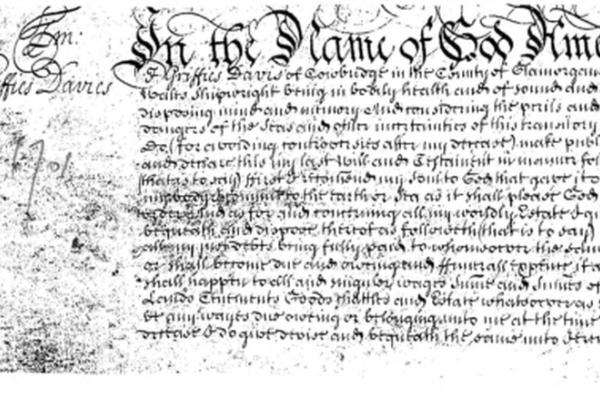 Tm:
In the Name of God Ame
ffies Davies
I Griffies Davis of Cowbridge in the County of Glamorgan
Wales Shipwright being in bodily health and of sound and
disposing mind and memory And considering the perils and
dangers of the Seas and other incertainties of this transitory
do (for avoiding controversies after my decease) make publ
and declare this my last Will and Testament in manner fol
(that is to say) ffirst I recommend my Soul to God that gave it
my body I commit to the earth or Sea as it shall please God
order And as for and concerning all my worldly Estate I
bequeath and dispose thereof as followeth (that is to say)
all my just debts being fully paid to whomsoever the same
or shall become due and owing and ffuneral Expence
shall happen to all and singular wages sume and sumes of
Lands Tenements Goods Chattles and Estate whatsoever as
be any wayes due owing or belonging unto me at the time
decease I do give devise and bequeath the same unto